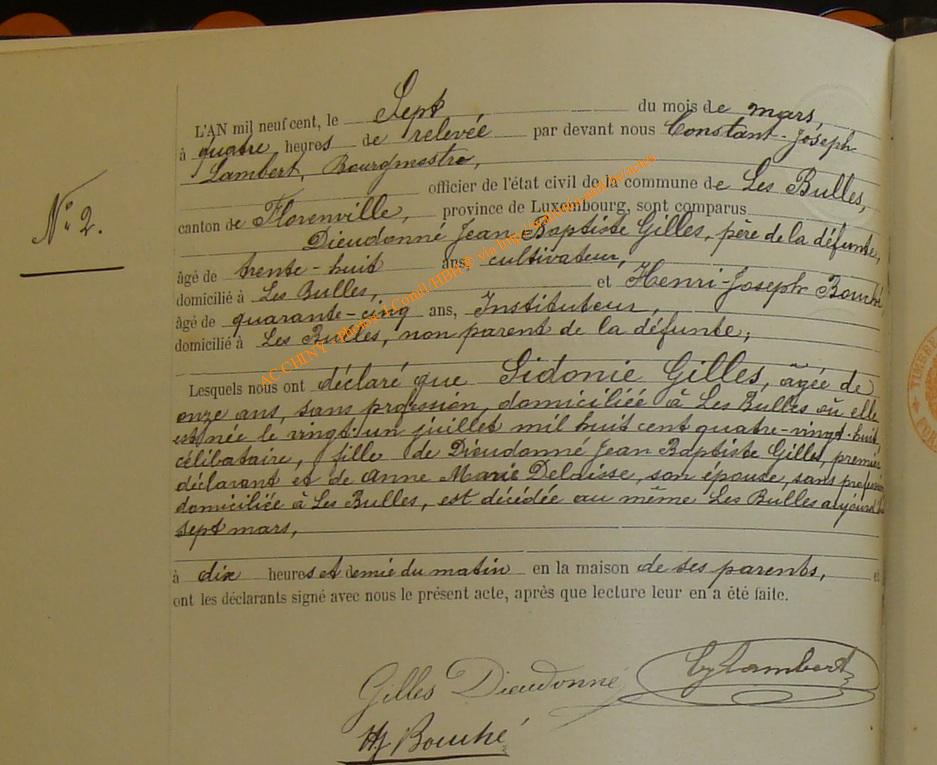 L'AN mil neuf cent, le Sept du mois de mars,
à quatre heures de relevée par devant nous Constant-Joseph
Lambert, Bourgmestre,
officier de l'état civil de la commune de Les Bulles,
N° 2.
canton de Florenville, province de Luxembourg, sont comparus
Dieudonné Jean Baptiste Gilles, père de la défunte,
âgé de trente-huit ans, cultivateur,
domicilié à Les Bulles, et Henri-Joseph Bouché
âgé de quarante-cinq ans, Instituteur,
domicilié à Les Bulles, non parent de la défunte;
Lesquels nous ont déclaré que Sidonie Gilles, âgée de
onze ans, sans profession, domiciliée à Les Bulles où elle
est née le vingt-un juillet mil huit cent quatre-vingt-huit,
célibataire, fille de Dieudonné Jean Baptiste Gilles, premier
déclarant et de Anne Marie Delaisse, son épouse, sans profession
domiciliée à Les Bulles, est décédée au même Les Bulles
sept mars,
à dix heures et demie du matin en la maison de ses parents, et
ont les déclarants signé avec nous le présent acte, après que lecture leur en a été faite.
Gilles Dieudonné
Lambert
HJ Bouché
TIMBRE